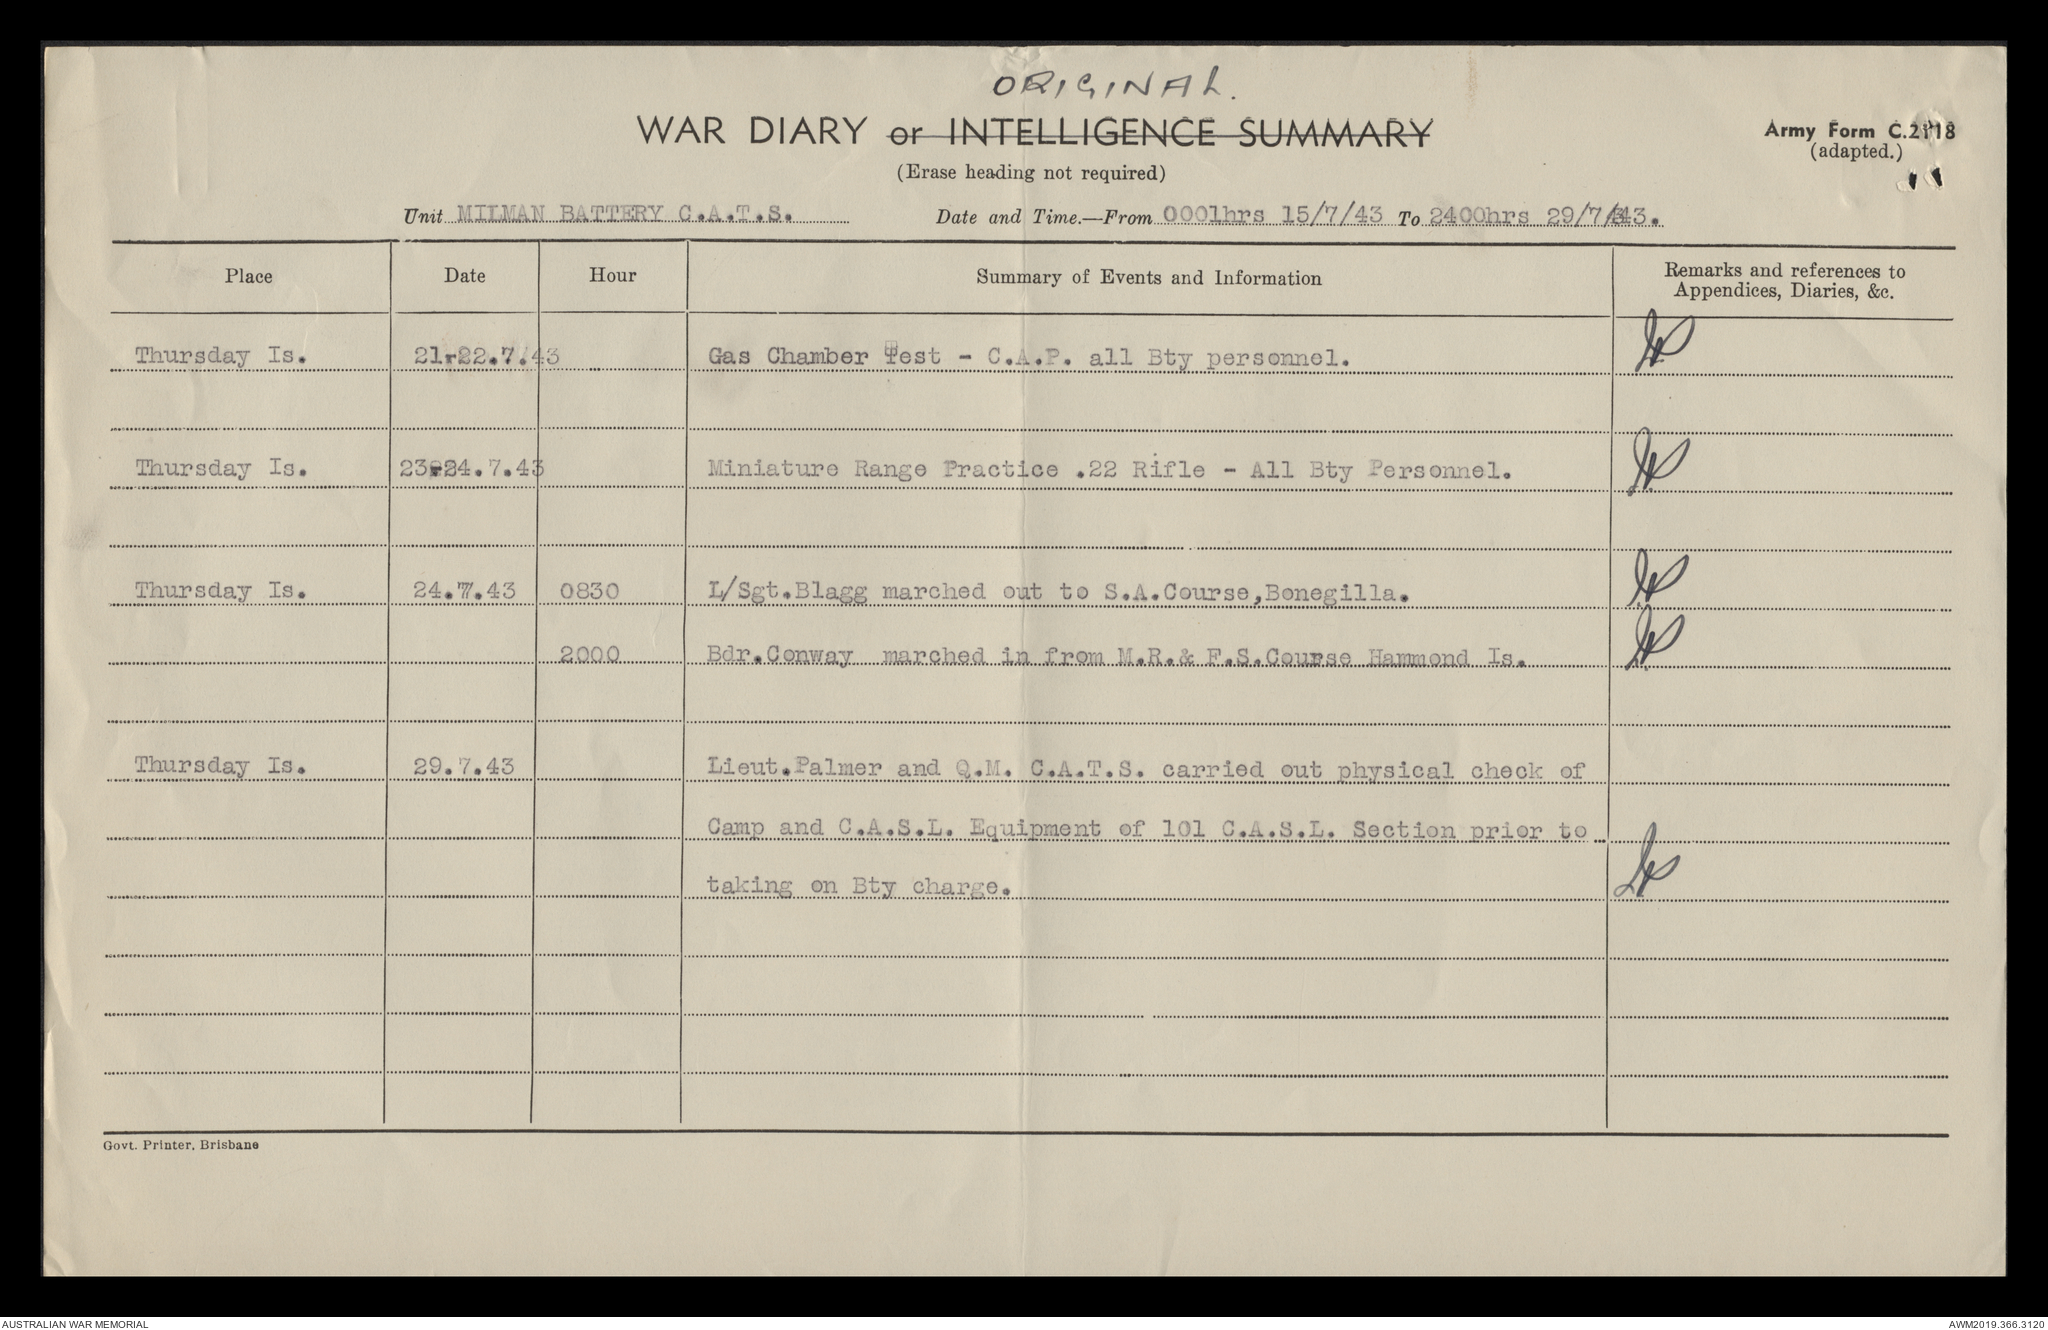 ORIGINAL.
WAR DIARY or INTELLIGENCE SUMMARY
Army Form C.2118
(adapted.)
(Erase heading not required)
Unit MILMAN BATTERY C.A.T.S. Date and Time.—From 0001hrs 15/7/43 To 2400hrs 29/7/43.
Place Date Hour Summary of Events and Information Remarks and references to
Appendices, Diaries, &c.
Thursday Is. 21-22.7.43 Gas Chamber Test - C.A.P. all Bty personnel.
Thursday Is. 23-24.7.43 Miniature Range Practice .22 Rifle - All Bty Personnel.
Thursday Is. 24.7.43 0830 L/Sgt.Blagg marched out to S.A.Course,Bonegilla.
2000 Bdr.Conway marched in from M.R.& F.S.Course Hammond Is.
Thursday Is. 29.7.43 Lieut.Palmer and Q.M. C.A.T.S. carried out physical check of
Camp and C.A.S.L. Equipment of 101 C.A.S.L. Section prior to
taking on Bty charge.
Govt. Printer, Brisbane
AUSTRALIAN WAR MEMORIAL AWM2019.366.3120